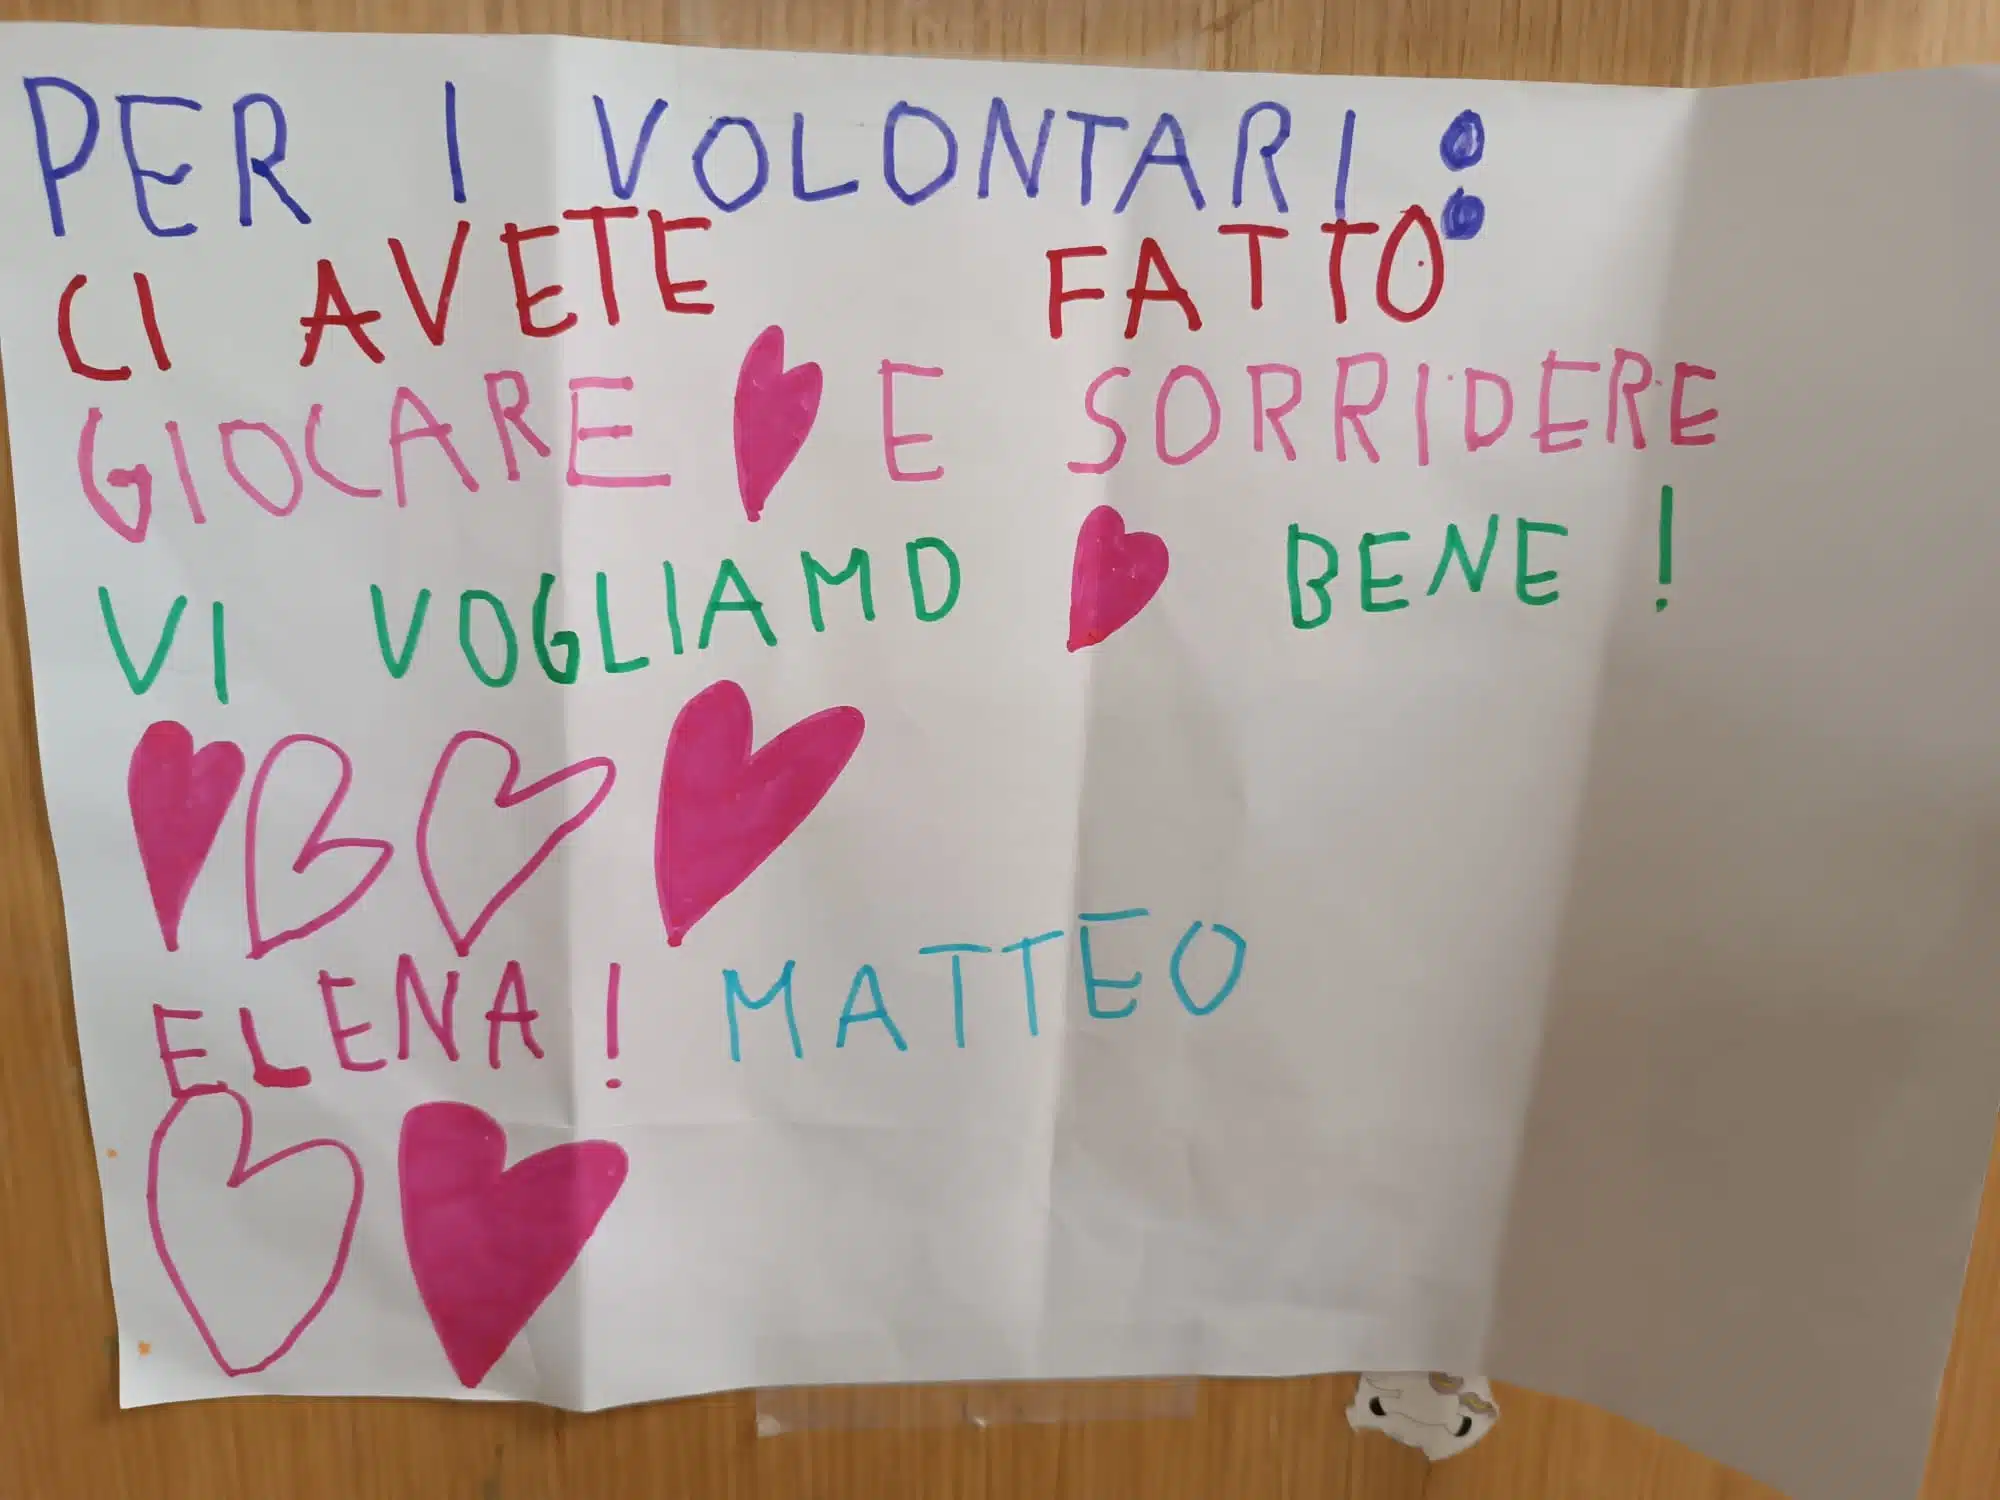 PER I VOLONTARI :
CI AVETE FATTO
GIOCARE E SORRIDERE
VI VOGLIAMO BENE !
ELENA! MATTEO